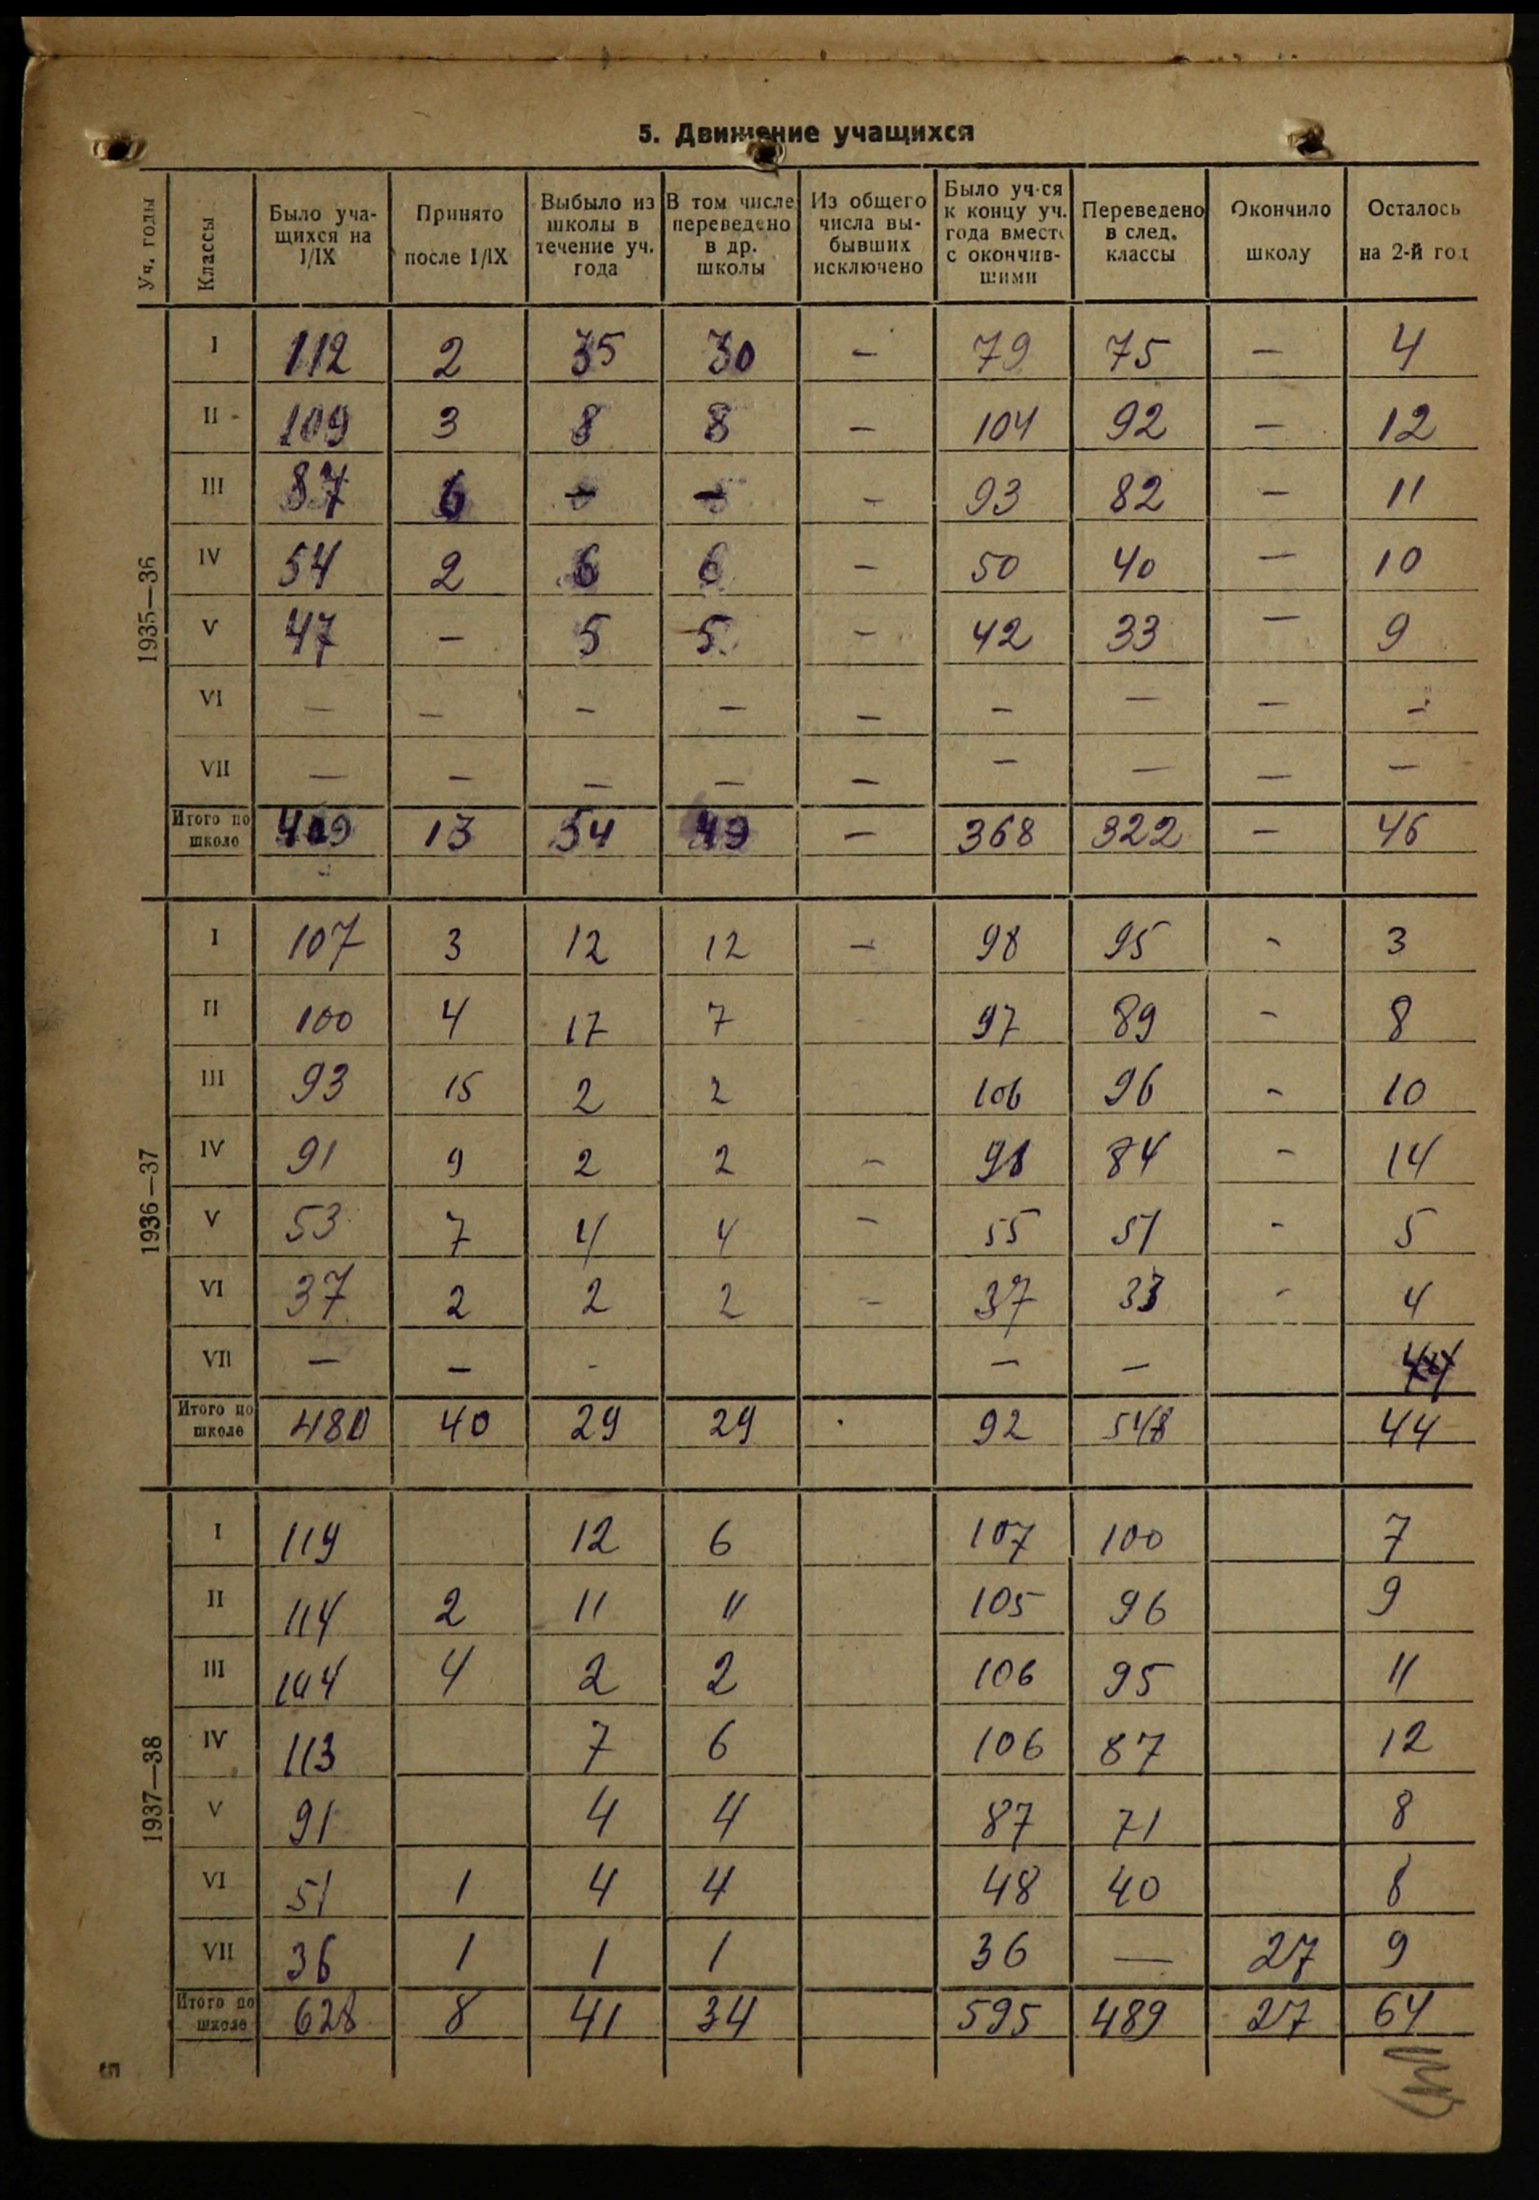 5. Движение учащихся
Уч. годы | Классы | Было учащихся на I/IX | Принято после I/IX | Выбыло из школы в течение уч. года | В том числе переведено в др. школы | Из общего числа выбывших исключено | Было уч-ся к концу уч. года вместе с окончившими | Переведено в след. классы | Окончило школу | Осталось на 2-й год
1935—36
I | 112 | 2 | 35 | 30 | — | 79 | 75 | — | 4
II | 109 | 3 | 8 | 8 | — | 104 | 92 | — | 12
III | 87 | 6 | — | — | — | 93 | 82 | — | 11
IV | 54 | 2 | 6 | 6 | — | 50 | 40 | — | 10
V | 47 | — | 5 | 5 | — | 42 | 33 | — | 9
VI | — | — | — | — | — | — | — | — | —
VII | — | — | — | — | — | — | — | — | —
Итого по школе | 409 | 13 | 54 | 49 | — | 368 | 322 | — | 46
1936—37
I | 107 | 3 | 12 | 12 | — | 98 | 95 | - | 3
II | 100 | 4 | 17 | 7 | | 97 | 89 | - | 8
III | 93 | 15 | 2 | 2 | | 106 | 96 | - | 10
IV | 91 | 9 | 2 | 2 | — | 98 | 84 | - | 14
V | 53 | 7 | 4 | 4 | — | 55 | 51 | - | 5
VI | 37 | 2 | 2 | 2 | — | 37 | 33 | - | 4
VII | — | — | - | | | — | — | |
Итого по школе | 480 | 40 | 29 | 29 | | 92 | 548 | | 44
1937—38
I | 119 | | 12 | 6 | | 107 | 100 | | 7
II | 114 | 2 | 11 | 11 | | 105 | 96 | | 9
III | 104 | 4 | 2 | 2 | | 106 | 95 | | 11
IV | 113 | | 7 | 6 | | 106 | 87 | | 12
V | 91 | | 4 | 4 | | 87 | 71 | | 8
VI | 51 | 1 | 4 | 4 | | 48 | 40 | | 8
VII | 36 | 1 | 1 | 1 | | 36 | — | 27 | 9
Итого по школе | 628 | 8 | 41 | 34 | | 595 | 489 | 27 | 64
5